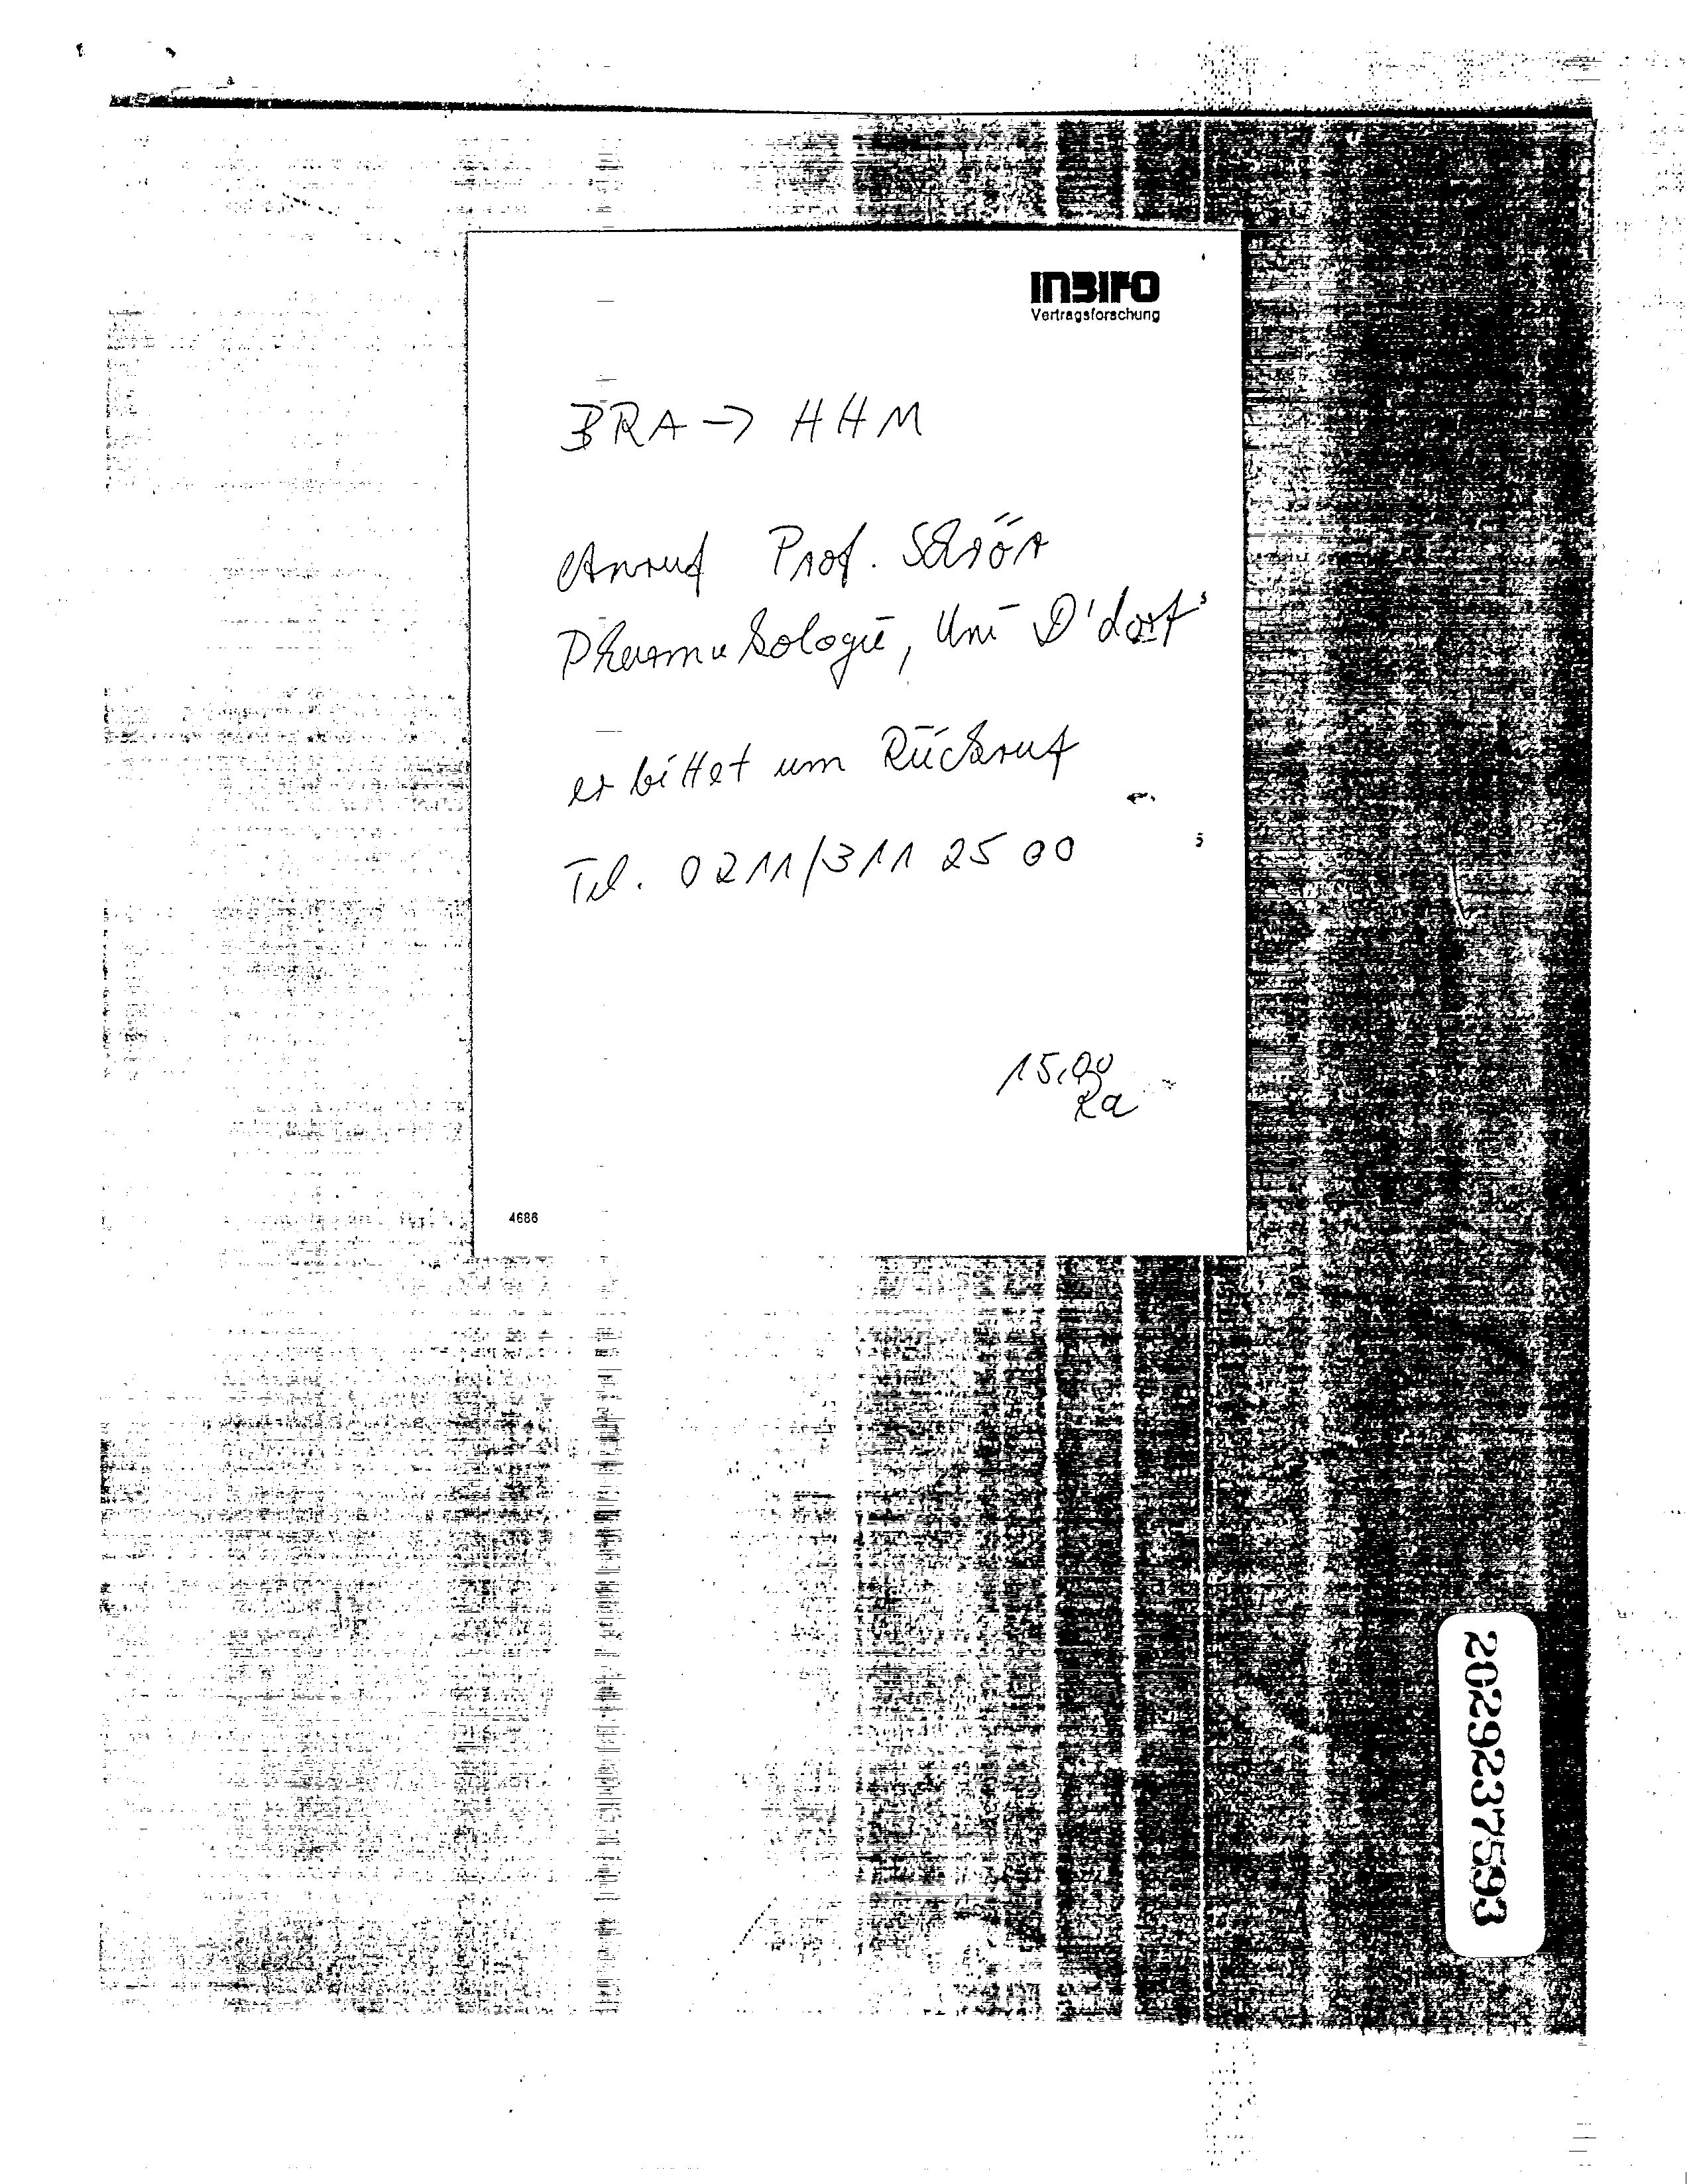 INBIFO
Vertragsforschung
BRA → HHM
Anruf Prof. Schrör
Pharmakologie, Uni D'dorf
er bittet um Rückruf
Tel. 0211/311 25 00
15.00
Ra
4686
2029237593